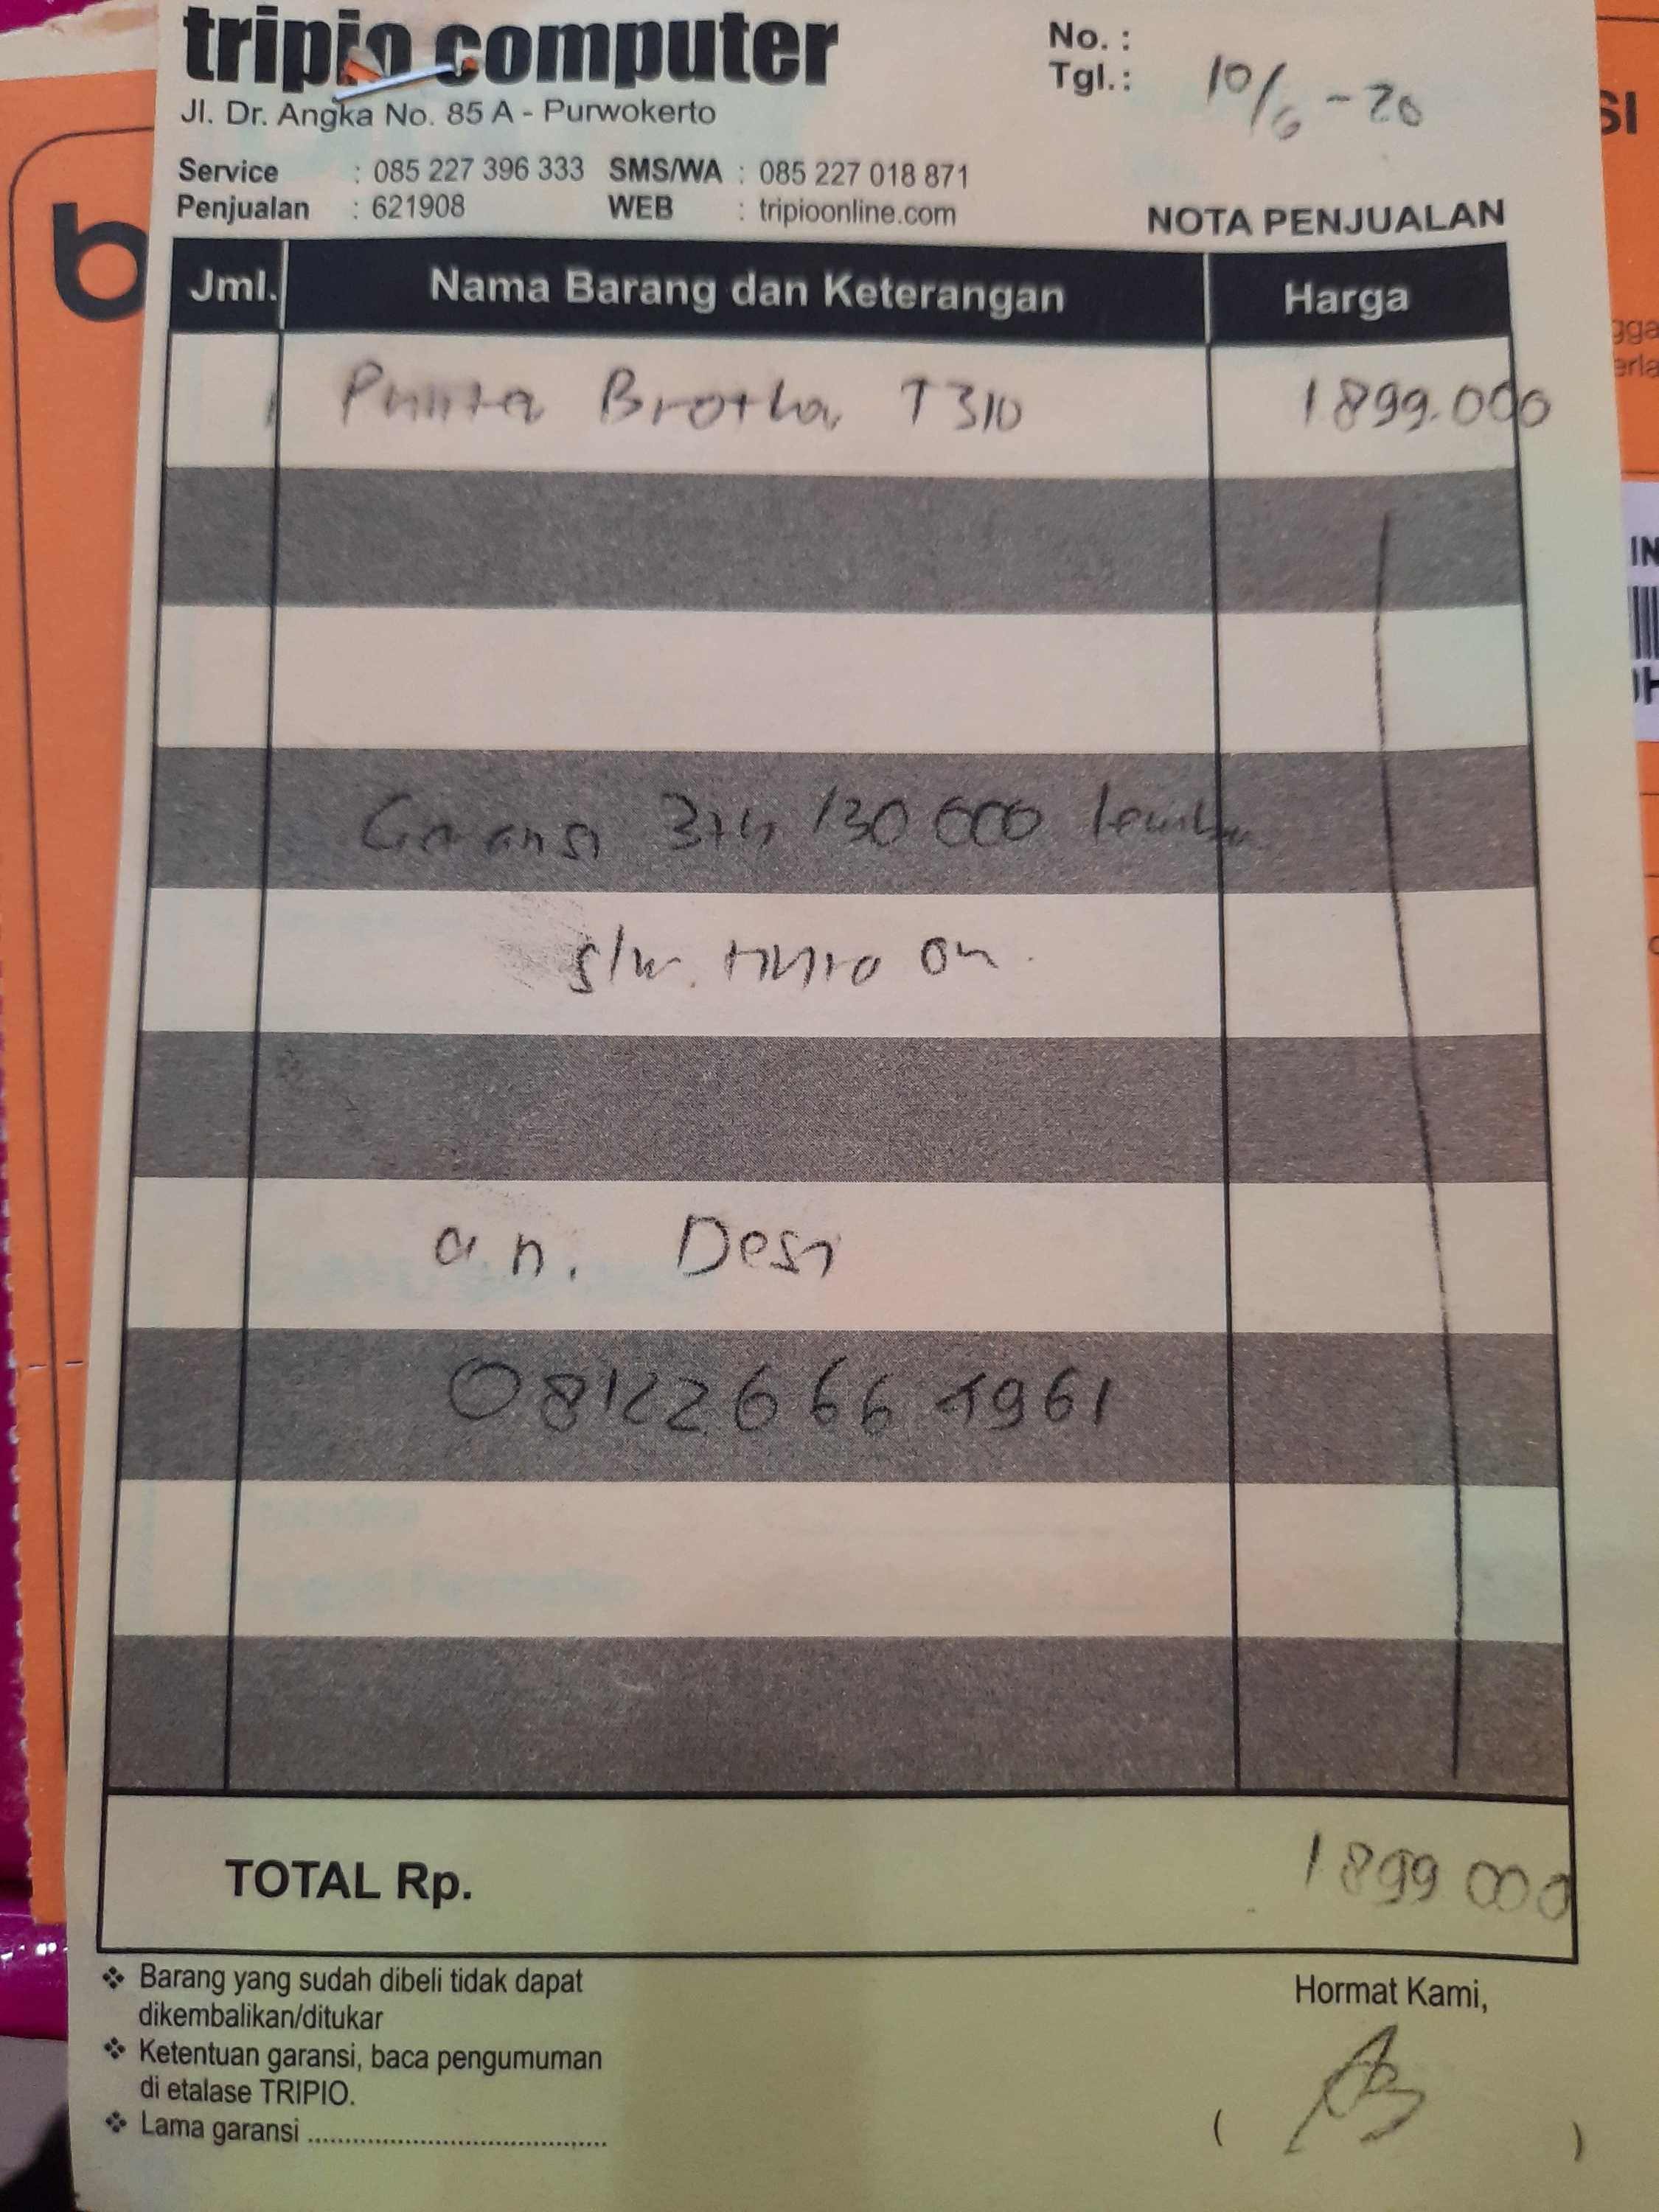 tripio computer
Jl. Dr. Angka No. 85 A - Purwokerto
No. :
Tgl.: 10/6 - 20
Service : 085 227 396 333 SMS/WA : 085 227 018 871
Penjualan : 621908 WEB : tripioonline.com
NOTA PENJUALAN
Jml. Nama Barang dan Keterangan Harga
1 Printer Brother T310 1899.000
Garansi 3th /30 000 lembar
an. Desi
081226664961
TOTAL Rp. 1899 000
❖ Barang yang sudah dibeli tidak dapat
dikembalikan/ditukar
❖ Ketentuan garansi, baca pengumuman
di etalase TRIPIO.
❖ Lama garansi ........................................
Hormat Kami,
( )
b
SI
gga
erla
IN